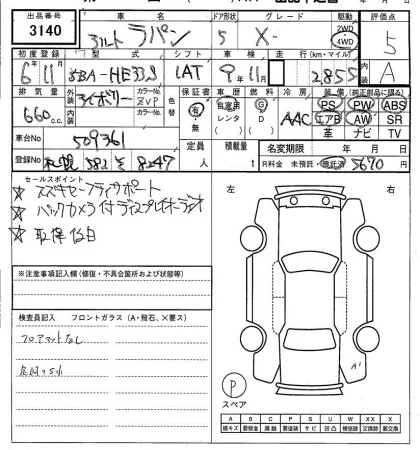 出品番号 車名 ドア形状 グレード 駆動 評価点
3140 アルト ラパン 5 X 2WD 4WD 5
初度登録 型式 シフト 車検 走行 (km・マイル) 内装
6年11月 5BA-HE33S IAT 9年11月 2855 A
排気量 外装 色替 保証書 車歴 燃料 冷房 装備(純正部品に限る)
660c.c. ZVP 有・無 自家用 レンタ G D AAC PS PW ABS
エアB AW SR
革 ナビ TV
車台No 509361 定員 人 積載量 t 名変期限 年 月 日
登録No 札幌 582 を 8247 R料金 未預託・預託済 5670
セールスポイント
☆ スズキセーフティサポート
☆ バックカメラ付ディスプレイオーディオ
☆ 取保後日
左 右
※注意事項記入欄(修復・不具合箇所および状態等)
検査員記入 フロントガラス(A・飛石、X要ス)
フロアマットなし
A'
P
スペア
A B C P S U W X XX
線キズ 要板金 腐食 要塗装 サビ 凹凸 補修跡 要交換 交換済